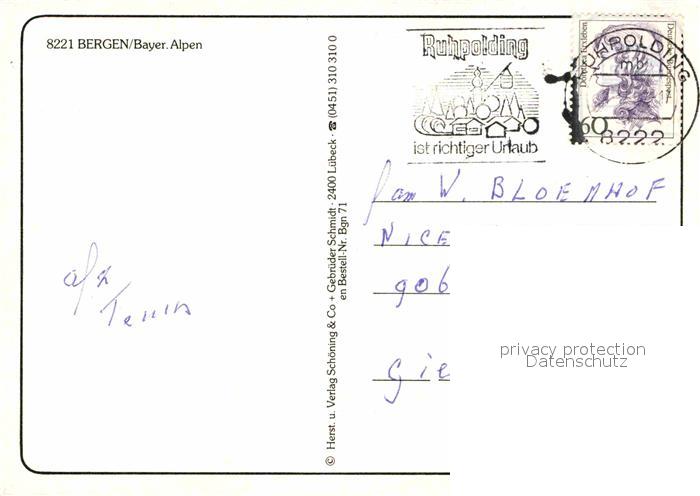 8221 BERGEN/Bayer. Alpen
Ruhpolding
ist richtiger Urlaub
RUHPOLDING
mb
8222
60
Fam W. BLOEMHOF
NICE
906
Gie
afz
© Herst. u. Verlag Schöning & Co + Gebrüder Schmidt · 2400 Lübeck · ☎ (0451) 310 310 0
en Bestell-Nr. Bgn 71
privacy protection
Datenschutz